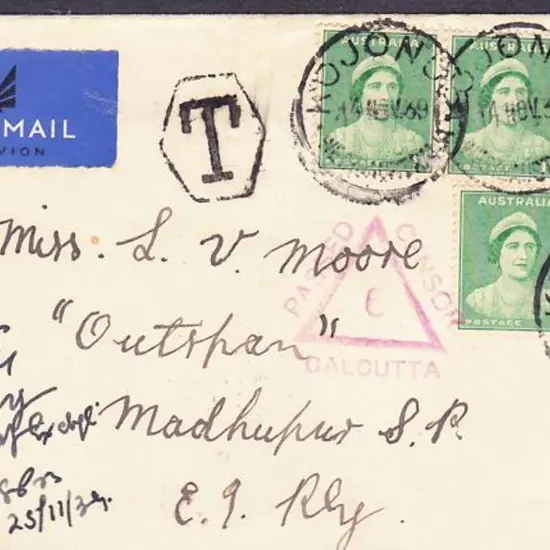 MAIL
T
KOJONU
14 NOV.39
AUSTRALIA
POSTAGE
AUSTRALIA
14 NOV.3
POSTAGE
AUSTRALIA
POSTAGE
PASSED CENSOR
6
CALCUTTA
Miss. L. V. Moore
"Outspan"
Madhupur S. P.
E. I. Rly.
25/11/39.